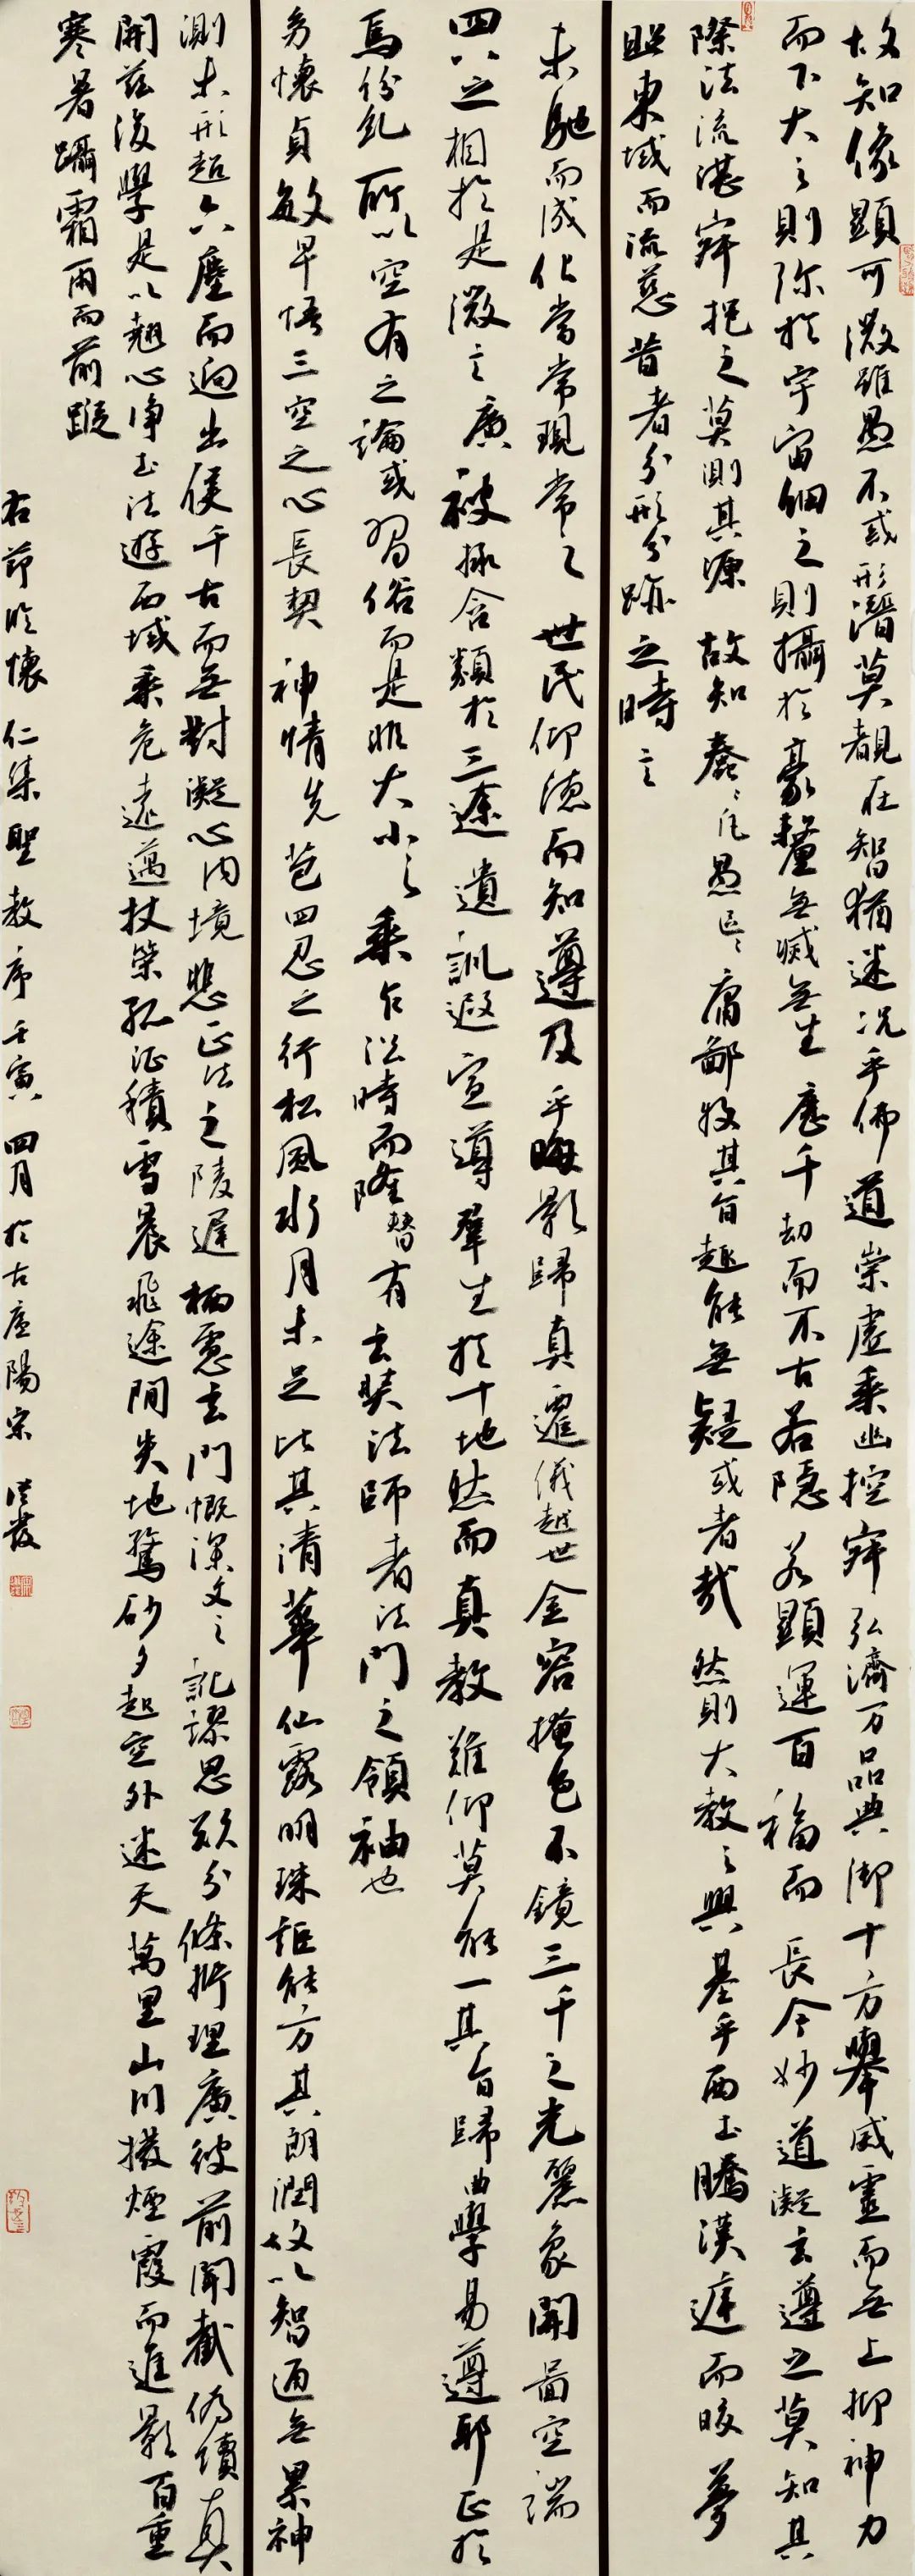 故知像顯可徵雖愚不惑形潛莫覩在智猶迷况乎佛道崇虛乘幽控寂弘濟万品典御十方舉威靈而無上抑神力
而下大之則弥於宇宙細之則攝於豪釐無滅無生歷千劫而不古若隱若顯運百福而長今妙道凝玄遵之莫知其
際法流湛寂挹之莫測其源故知蠢蠢凡愚區區庸鄙投其旨趣能無疑或者哉然則大教之興基乎西土騰漢庭而皎夢
照東域而流慈昔者分形分跡之時言
未馳而成化當常現常之世民仰德而知遵及乎晦影歸真遷儀越世金容掩色不鏡三千之光麗象開圖空端
四八之相於是微言廣被拯含類於三塗遺訓遐宣導羣生於十地然而真教難仰莫能一其旨歸曲學易遵耶正於
焉紛糺所以空有之論或習俗而是非大小之乘乍沿時而隆替有玄奘法師者法門之領袖也
㓜懷貞敏早悟三空之心長契神情先苞四忍之行松風水月未足比其清華仙露明珠詎能方其朗潤故以智通無累神
測未形超六塵而迥出隻千古而無對凝心內境悲正法之陵遲栖慮玄門慨深文之訛謬思欲分條析理廣彼前聞截偽續真
開茲後學是以翹心淨土法遊西域乘危遠邁杖策孤征積雪晨飛途間失地驚砂夕起空外迷天萬里山川撥煙霞而進影百重
寒暑躡霜雨而前蹤
右節臨懷仁集聖教序壬寅四月於古盧陽宋